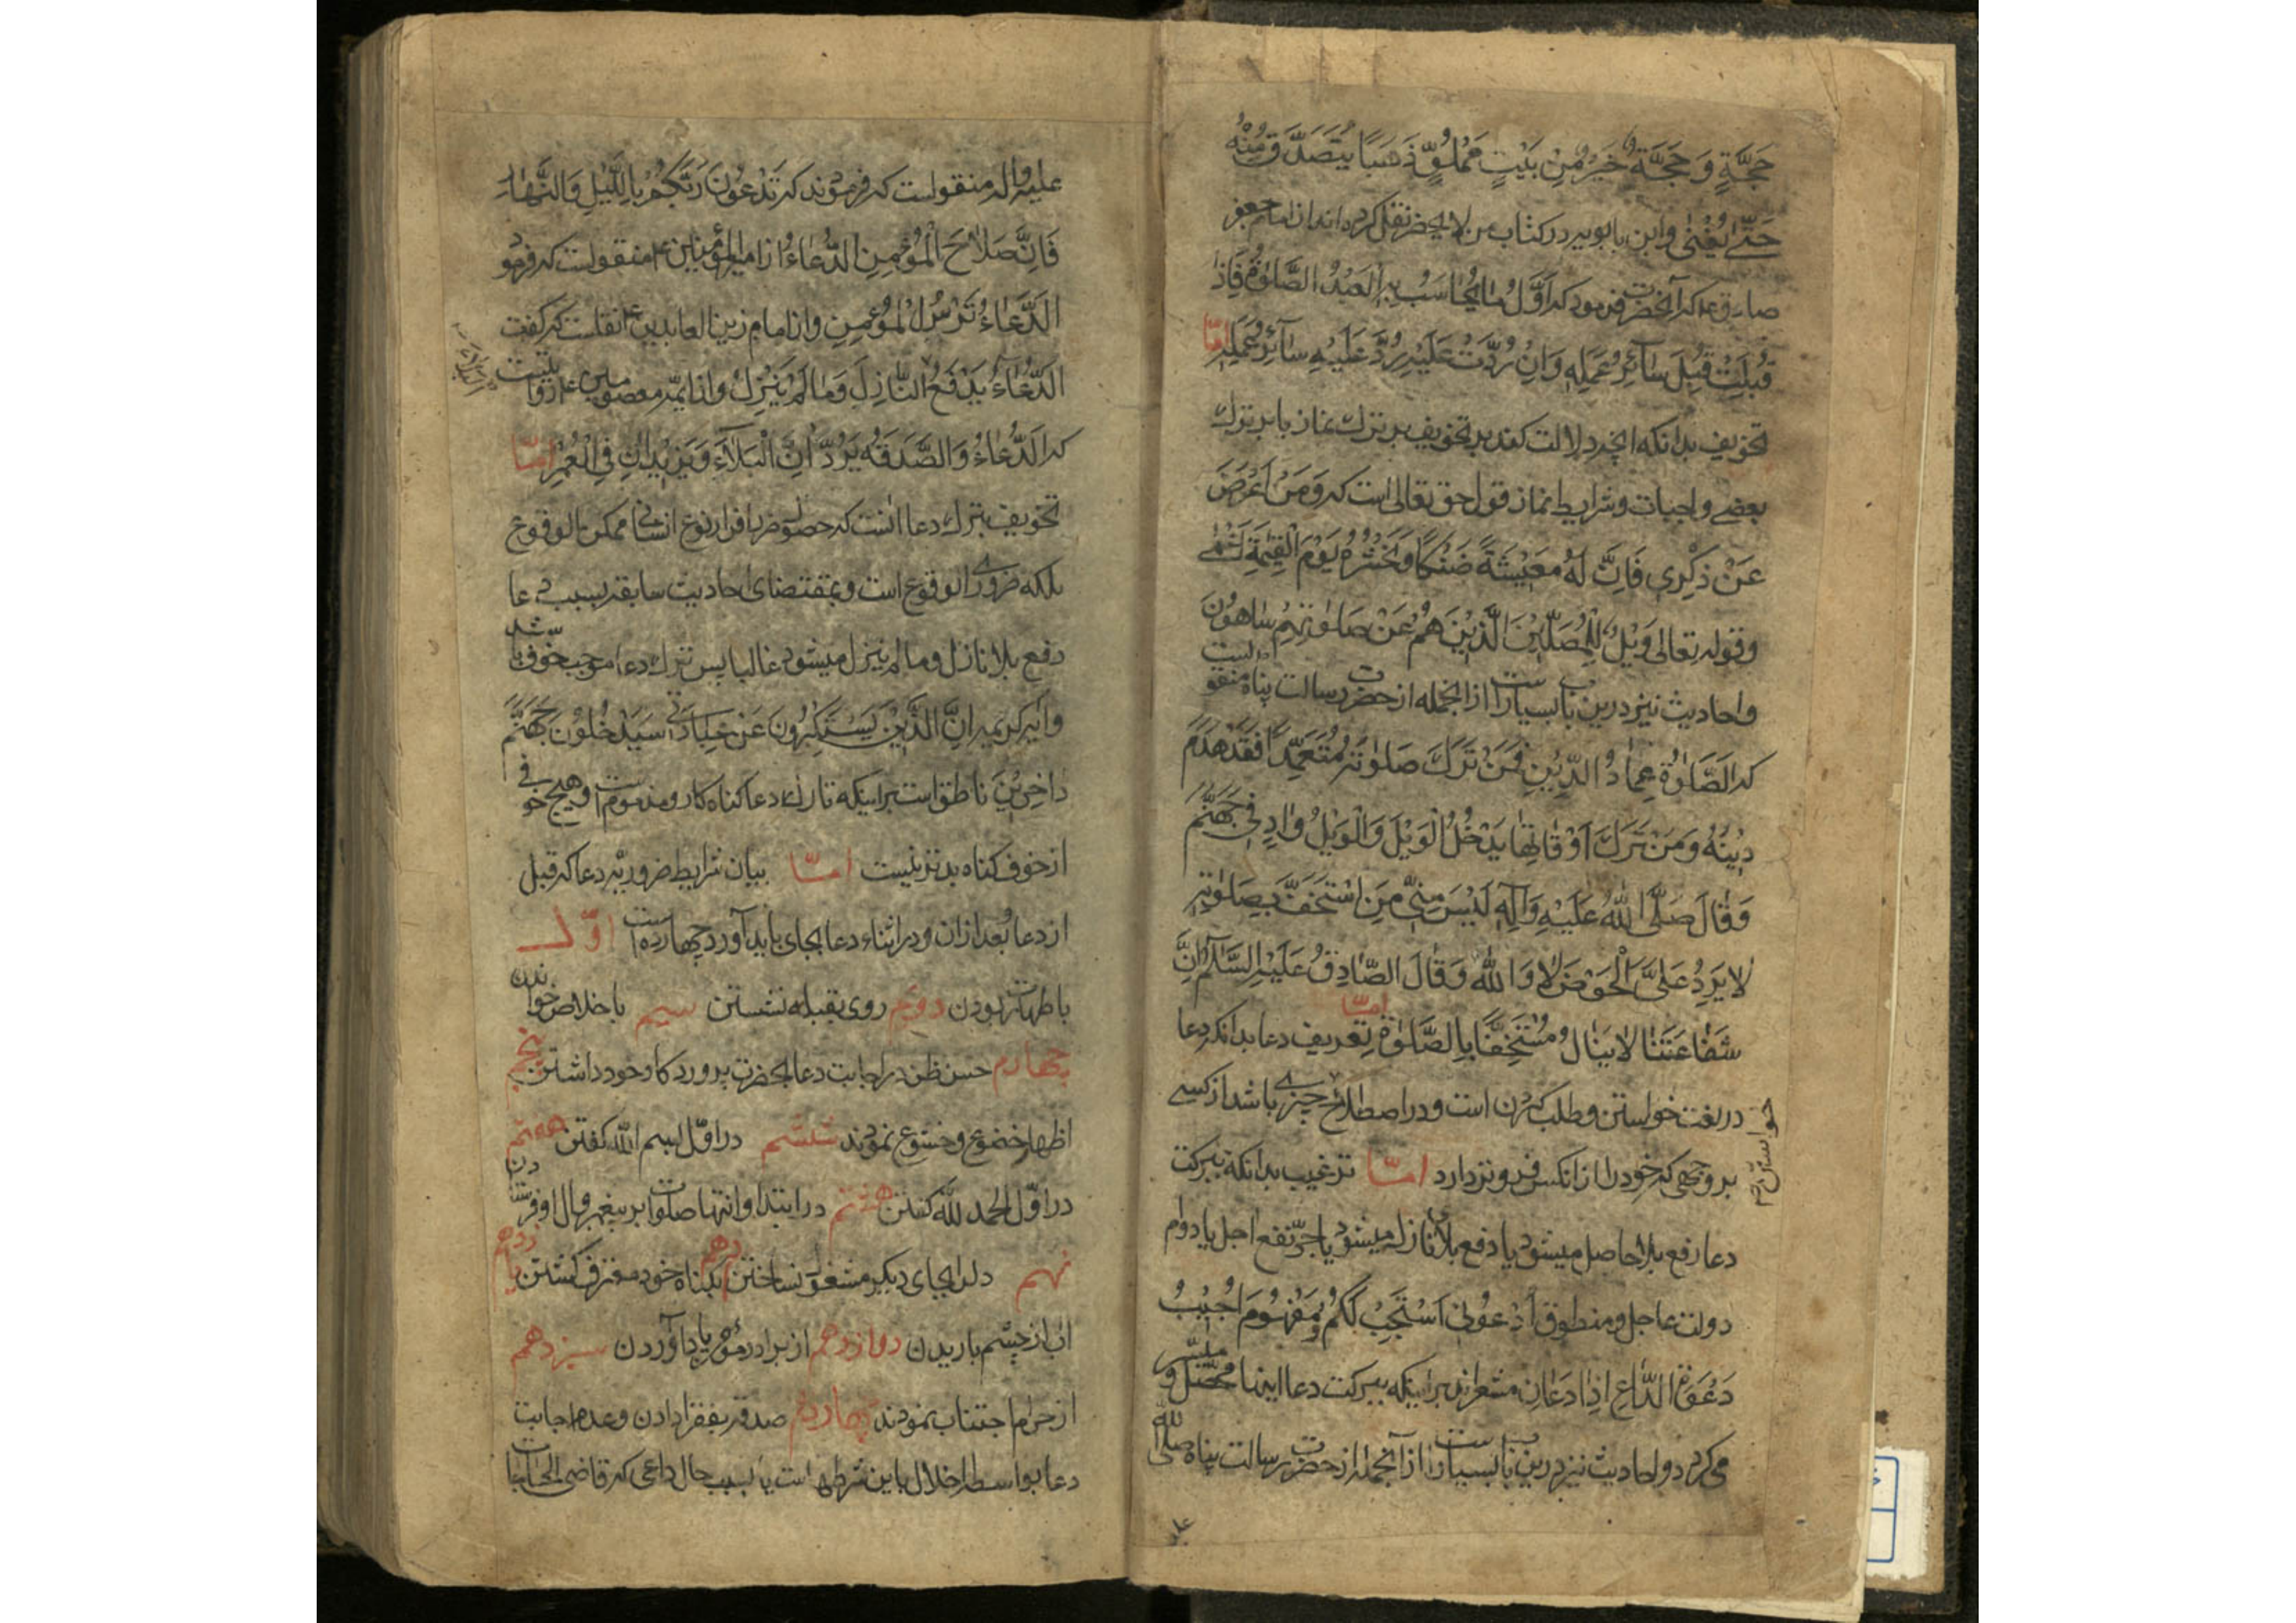 حَجَّةٍ وَحَجَّةٌ خَيْرٌ مِنْ بَيْتٍ مَمْلُوٍّ ذَهَبًا يُتَصَدَّقُ مِنْهُ
حَتّٰى يُفْنٰى وابن بابويه در كتاب من لا يحضر نقل كرده اند از امام جعفر
صادق ع كه آنحضرت فرمود كه اَوَّلُ مٰا يُحٰاسَبُ بِهِ الْعَبْدُ الصَّلٰوةُ فَاِذٰا
قُبِلَتْ قُبِلَ سٰآئِرُ عَمَلِهٖ وَاِنْ رُدَّتْ عَلَيْهِ رُدَّ عَلَيْهِ سٰآئِرُ عَمَلِهٖ امّا
تخويف بدانكه انچه دلالت كند بر تخويف بر ترك نماز يا بر ترك
بعضى واجبات و شرايط نماز قول حق تعالى است كه وَمَنْ اَعْرَضَ
عَنْ ذِكْرِي فَاِنَّ لَهُ مَعِيْشَةً ضَنْكًا وَنَحْشُرُهُ يَوْمَ الْقِيٰمَةِ اَعْمٰى
وقوله تعالى وَيْلٌ لِلْمُصَلِّيْنَ الَّذِيْنَ هُمْ عَنْ صَلٰوتِهِمْ سٰاهُونَ
واحاديث نيز درين باب بسيار است از انجمله از حضرت رسالت پناه منقولست
كه اَلصَّلٰوةُ عِمٰادُ الدِّيْنِ فَمَنْ تَرَكَ صَلٰوتَهُ مُتَعَمِّدًا فَقَدْ هَدَمَ
دِيْنَهُ وَمَنْ تَرَكَ اَوْقٰاتِهٰا يَدْخُلُ الْوَيْلَ وَالْوَيْلُ وٰادٍ فِي جَهَنَّمَ
وَقٰالَ صَلَّى اللّٰهُ عَلَيْهِ وَآلِهِ لَيْسَ مِنِّي مَنِ اسْتَخَفَّ بِصَلٰوتِهِ
لٰا يَرِدُ عَلَيَّ الْحَوْضَ لٰا وَاللّٰهِ وَقٰالَ الصّٰادِقُ عَلَيْهِ السَّلٰامُ اِنَّ
شَفٰاعَتَنٰا لٰا يَنٰالُ مُسْتَخِفًّا بِالصَّلٰوةِ امّا تعريف دعا بدانكه دعا
در لغت خواستن و طلب كردن است و در اصطلاح چيزى باشد از كسى
بر وجهى كه خود را از انكس فروتر دارد امّا ترغيب بدانكه ببركت
دعا رفع بلا حاصل ميشود يا دفع بلاى نازله ميشود يا جرّ نفع اجل يا دوام
دولت عاجل و منطوق اُدْعُونِي اَسْتَجِبْ لَكُمْ وَمَفْهُومَ اُجِيْبُ
دَعْوَةَ الدّٰاعِ اِذٰا دَعٰانِ مشعرند بر اينكه ببركت دعا اينها محصّل و ميسّر
مى كردد و احاديث نيز درين باب بسيار است از آنجمله از حضرت رسالت پناه صلى الله
عليه
عليه واله منقولست كه فرمودند كه تَدْعُونَ رَبَّكُمْ بِاللَّيْلِ وَالنَّهٰارِ
فَاِنَّ صَلٰاحَ الْمُؤْمِنِ الدُّعٰاءُ از امير المؤمنين ع منقولست كه فرمود
الدُّعٰاءُ تُرْسُ الْمُؤْمِنِ واز امام زين العابدين ع نقلست كه كفت
الدُّعٰاءُ يَدْفَعُ النّٰازِلَ وَمٰا لَمْ يَنْزِلْ واز ايمّه معصومين ع روايتست
كه الدُّعٰاءُ وَالصَّدَقَةُ يَرُدّٰانِ الْبَلٰآءَ وَيَزِيْدٰانِ فِي الْعُمْرِ امّا
تخويف بترك دعا انست كه حصول ضرر بافراد نوع انسانى ممكن الوقوع
بلكه ضرورى الوقوع است و بمقتضاى احاديث سابقه بسبب دعا
دفع بلا نازل و ما لم ينزل ميشود غالبا پس ترك دعا موجب خوف باشد
وايه كريمه اِنَّ الَّذِيْنَ يَسْتَكْبِرُونَ عَنْ عِبٰادَتِي سَيَدْخُلُوْنَ جَهَنَّمَ
دٰاخِرِيْنَ ناطق است بر اينكه تارك دعا كناه كار و مذموم است و هيچ خوفى
از خوف كناه بدتر نيست امّا بيان شرايط ضروريّه دعا كه قبل
از دعا و بعد ازان و در اثناء دعا بجاى بايد آورد چهارده است اوّل
با طهارت بودن دويم روى بقبله نشستن سيم باخلاص خواندن
چهارم حسن ظن در اجابت دعا بحضرت پروردكار خود داشتن پنجم
اظهار خضوع و خشوع نمودند ششم در اوّل بسم اللّه كفتن هفتم
در اوّل الحمد للّه كفتن هشتم در ابتدا و انتها صلوات بر پيغمبر و ال او فرستادن
نهم دل را بجاى ديكر مشغول نساختن دهم بكناه خود معترف كشتن يازدهم
اب از چشم باريدن دوازدهم از برادر مؤمن ياد آوردن سيزدهم
از حرام اجتناب نمودند چهاردهم صدقه بفقرا دادن و عدم اجابت
دعا بواسطه اخلال باين شرطها است يا بسبب حال داعى كه قاضى الحاجات